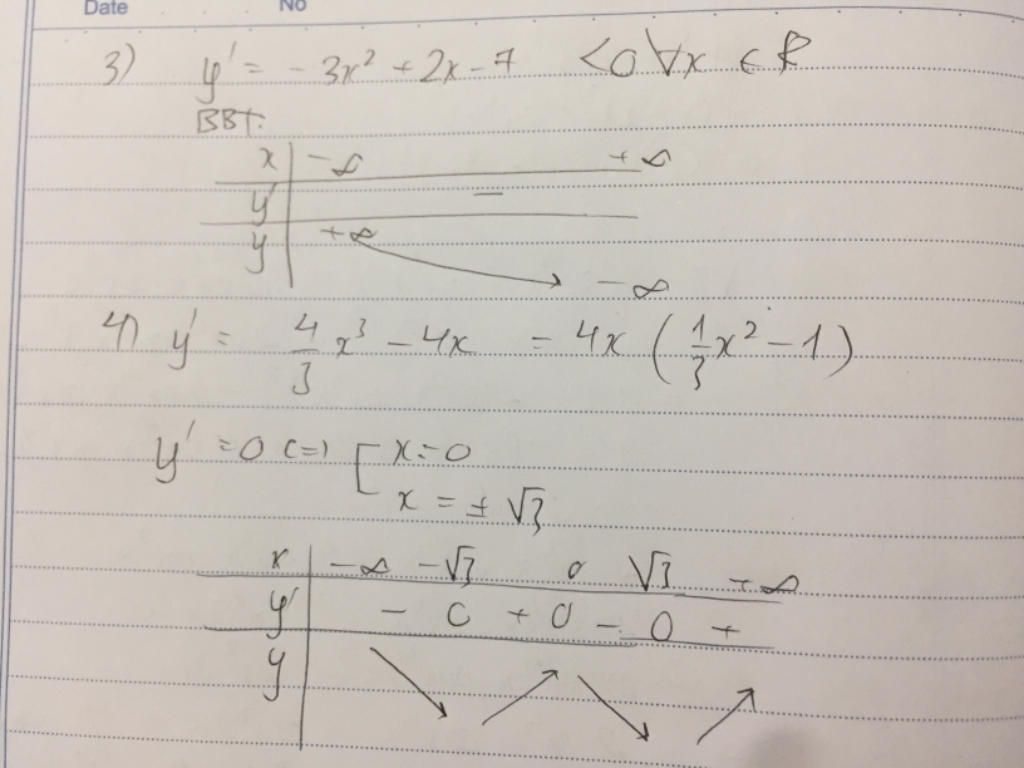 Date No
3) y' = - 3x² + 2x - 7 < 0 ∀x ∈ R
BBT:
x | -∞ +∞
y' | -
y | +∞ ↘ -∞
4) y' = 4/3 x³ - 4x = 4x (1/3 x² - 1)
y' = 0 <=> [ x = 0
x = ± √3
x | -∞ -√3 0 √3 +∞
y' | - 0 + 0 - 0 +
y | ↘ ↗ ↘ ↗